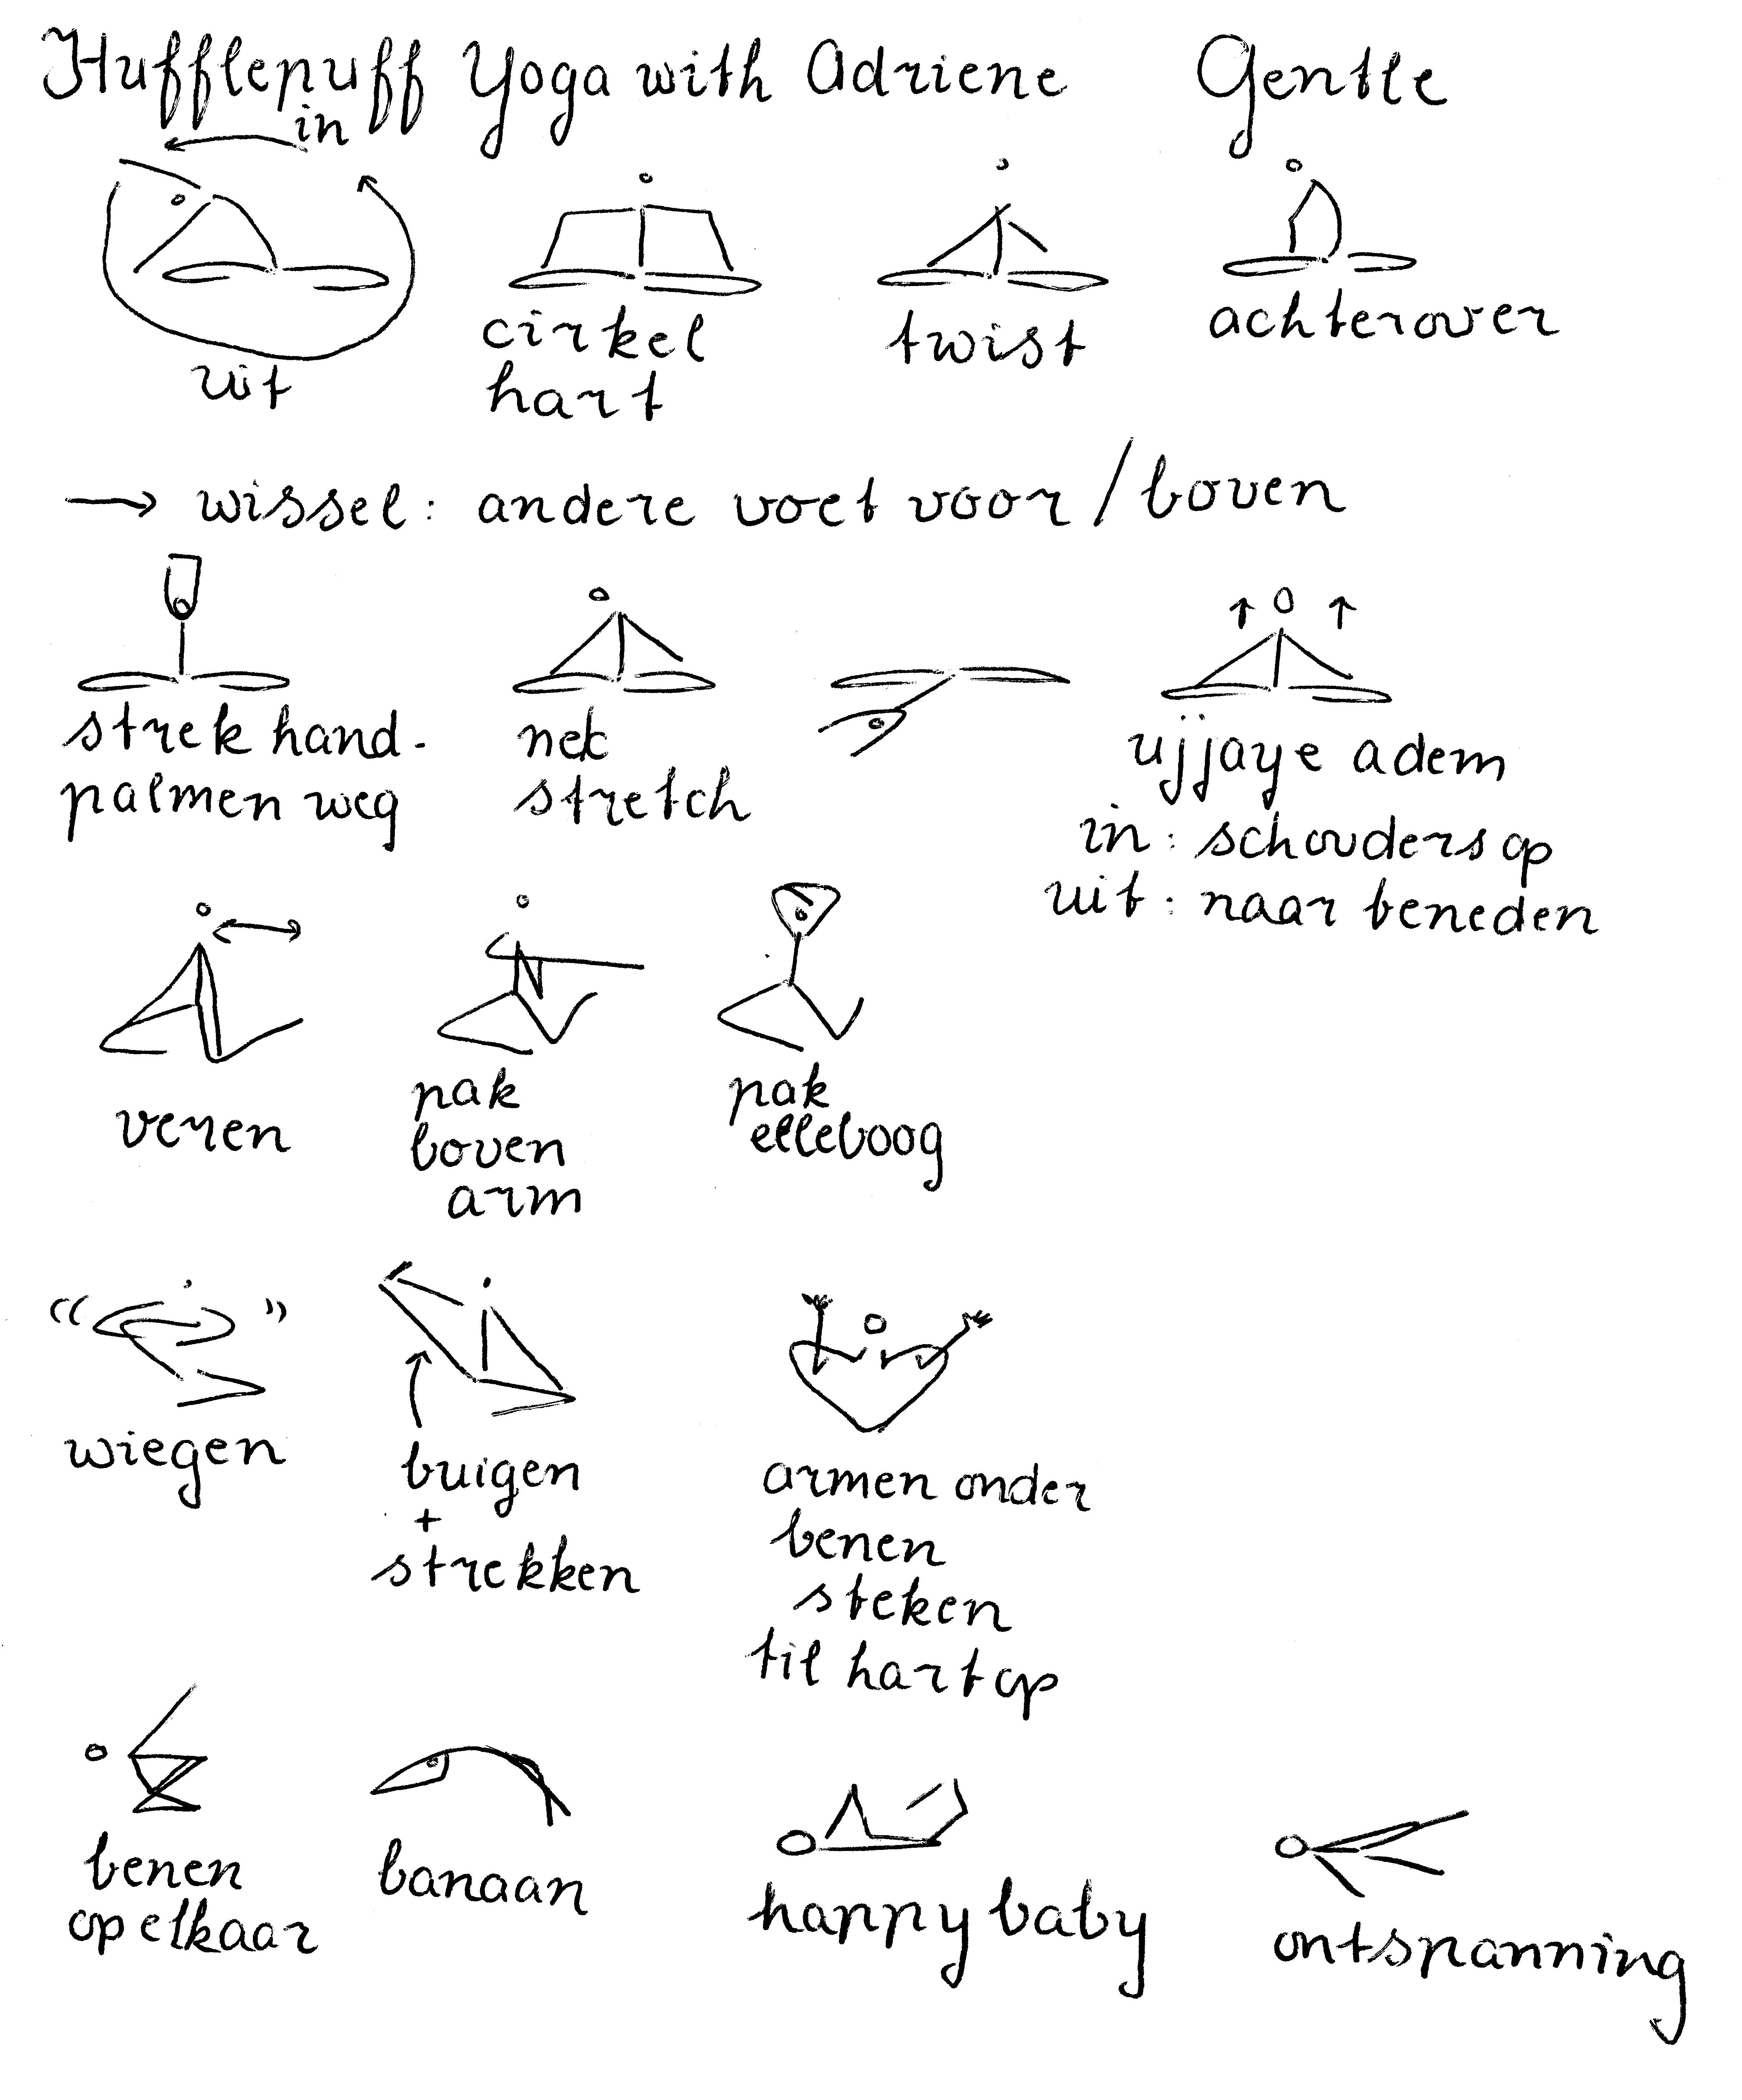 Hufflepuff Yoga with Adriene Gentle
in
uit
cirkel
hart
twist
achterover
→ wissel: andere voet voor/boven
strek hand-
palmen weg
nek
stretch
ujjaye adem
in: schouders op
uit: naar beneden
veren
pak
boven
arm
pak
elleboog
wiegen
buigen
+
strekken
armen onder
benen
steken
til hart op
benen
op elkaar
banaan
happy baby
ontspanning